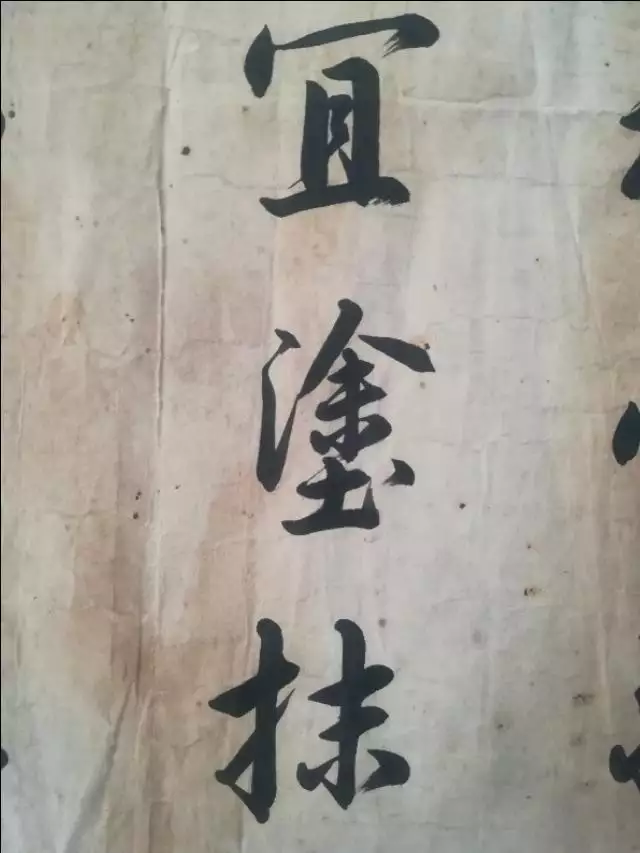 宜塗抹